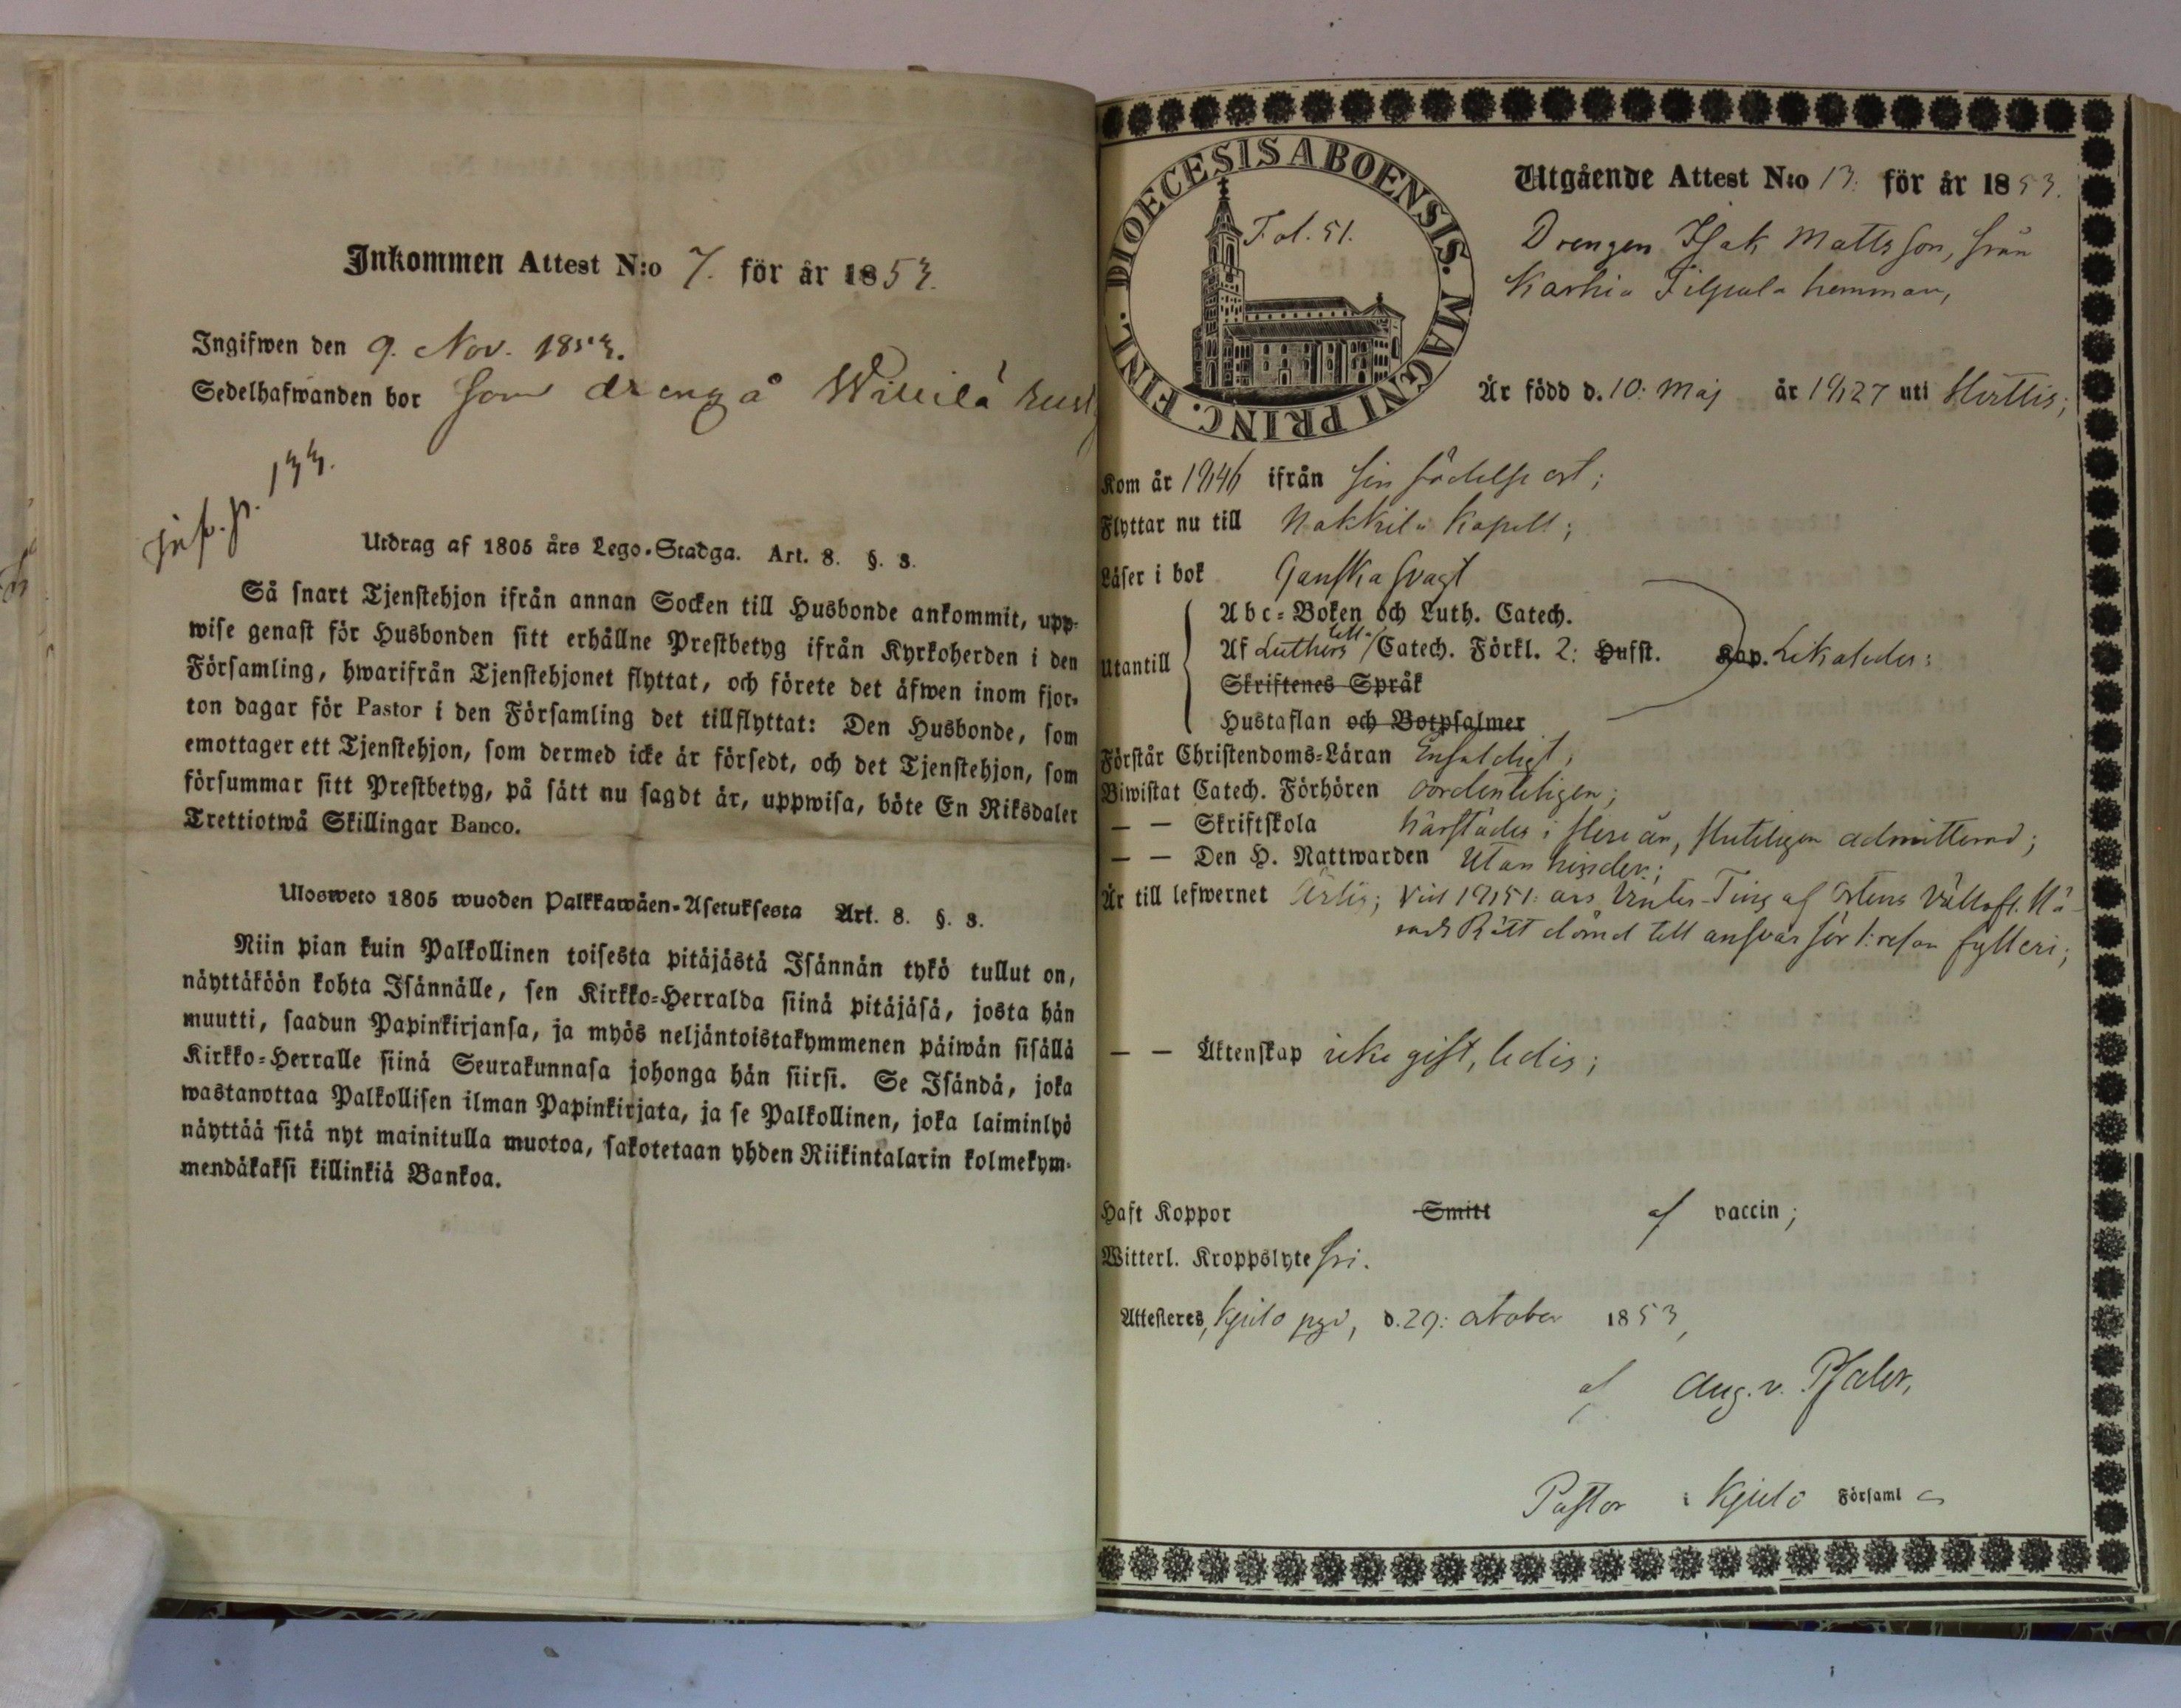 Inkommen Attest N:o 7. för år 1853.
Ingifwen den 9. Nov. 1853.
Sedelhafwanden bor som dreng å
inf. p. 133.
Utdrag af 1805 års Lego-Stadga. Art. 8. §. 8.
Så snart Tjenstehjon ifrån annan Socken till Husbonde ankommit, upp-
wise genast för Husbonden sitt erhållne Prestbetyg ifrån Kyrkoherden i den
Församling, hwarifrån Tjenstehjonet flyttat, och förete det äfwen inom fjor-
ton dagar för Pastor i den Församling det tillflyttat: Den Husbonde, som
emottager ett Tjenstehjon, som dermed icke är försedt, och det Tjenstehjon, som
försummar sitt Prestbetyg, på sätt nu sagdt är, uppwisa, böte En Riksdaler
Trettiotwå Skillingar Banco.
Ulosweto 1805 wuoden Palkkawäen-Asetuksesta Art. 8. §. 8.
Niin pian kuin Palkollinen toisesta pitäjästä Isännän tykö tullut on,
näyttäköön kohta Isännälle, sen Kirkko-Herralda siinä pitäjäsä, josta hän
muutti, saadun Papinkirjansa, ja myös neljäntoistakymmenen päiwän sisällä
Kirkko-Herralle siinä Seurakunnasa johonga hän siirsi. Se Isändä, joka
wastanottaa Palkollisen ilman Papinkirjata, ja se Palkollinen, joka laiminlyö
näyttää sitä nyt mainitulla muotoa, sakotetaan yhden Riikintalarin kolmekym-
mendäkaksi killinkiä Bankoa.
DIOECESIS ABOENSIS. MAGNI PRINC. FINL.
Fol. 51.
Utgående Attest N:o 13. för år 1853.
Drengen Isak Mattsson, från
Karhia Filpula hemman,
Är född d. 10: Maj år 1827 uti Hvittis;
Kom år 1846 ifrån sin födelse ort;
Flyttar nu till Nakkila Kapell;
Läser i bok Ganska svagt
Abc-Boken och Luth. Catech.
Utantill Af Luthers lilla Catech. Förkl. 2: Husst. Kap. Likaledes:
Skriftenes Språk
Hustaflan och Botpsalmer
Förstår Christendoms-Läran Enfaldigt;
Biwistat Catech. Förhören oordenteligen;
— — Skriftskola härstädes i flere år, slutligen admitterad;
— — Den H. Nattwarden Utan hinder;
Är till lefwernet Ärlig; vid 1851: års Vinter-Ting af Ortens Vällofl. Hä-
rads Rätt dömd till ansvar för 1: resan fylleri;
— — Äktenskap icke gift, ledig;
Haft Koppor Smitt af vaccin;
Witterl. Kroppslyte fri.
Attesteres, Kjulo pgd, d. 29: october 1853,
af Aug. v. Pfaler,
Pastor i Kjulo Församl